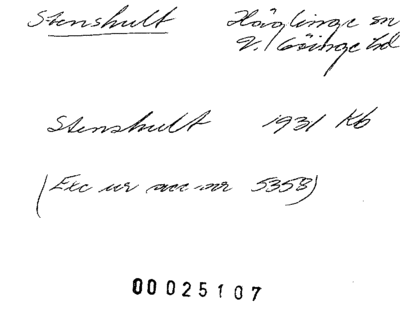 Stenshult Häglinge sn
V. Göinge hd
Stenshult 1931 Kb
(Exc ur acc nr 5358)
00025107